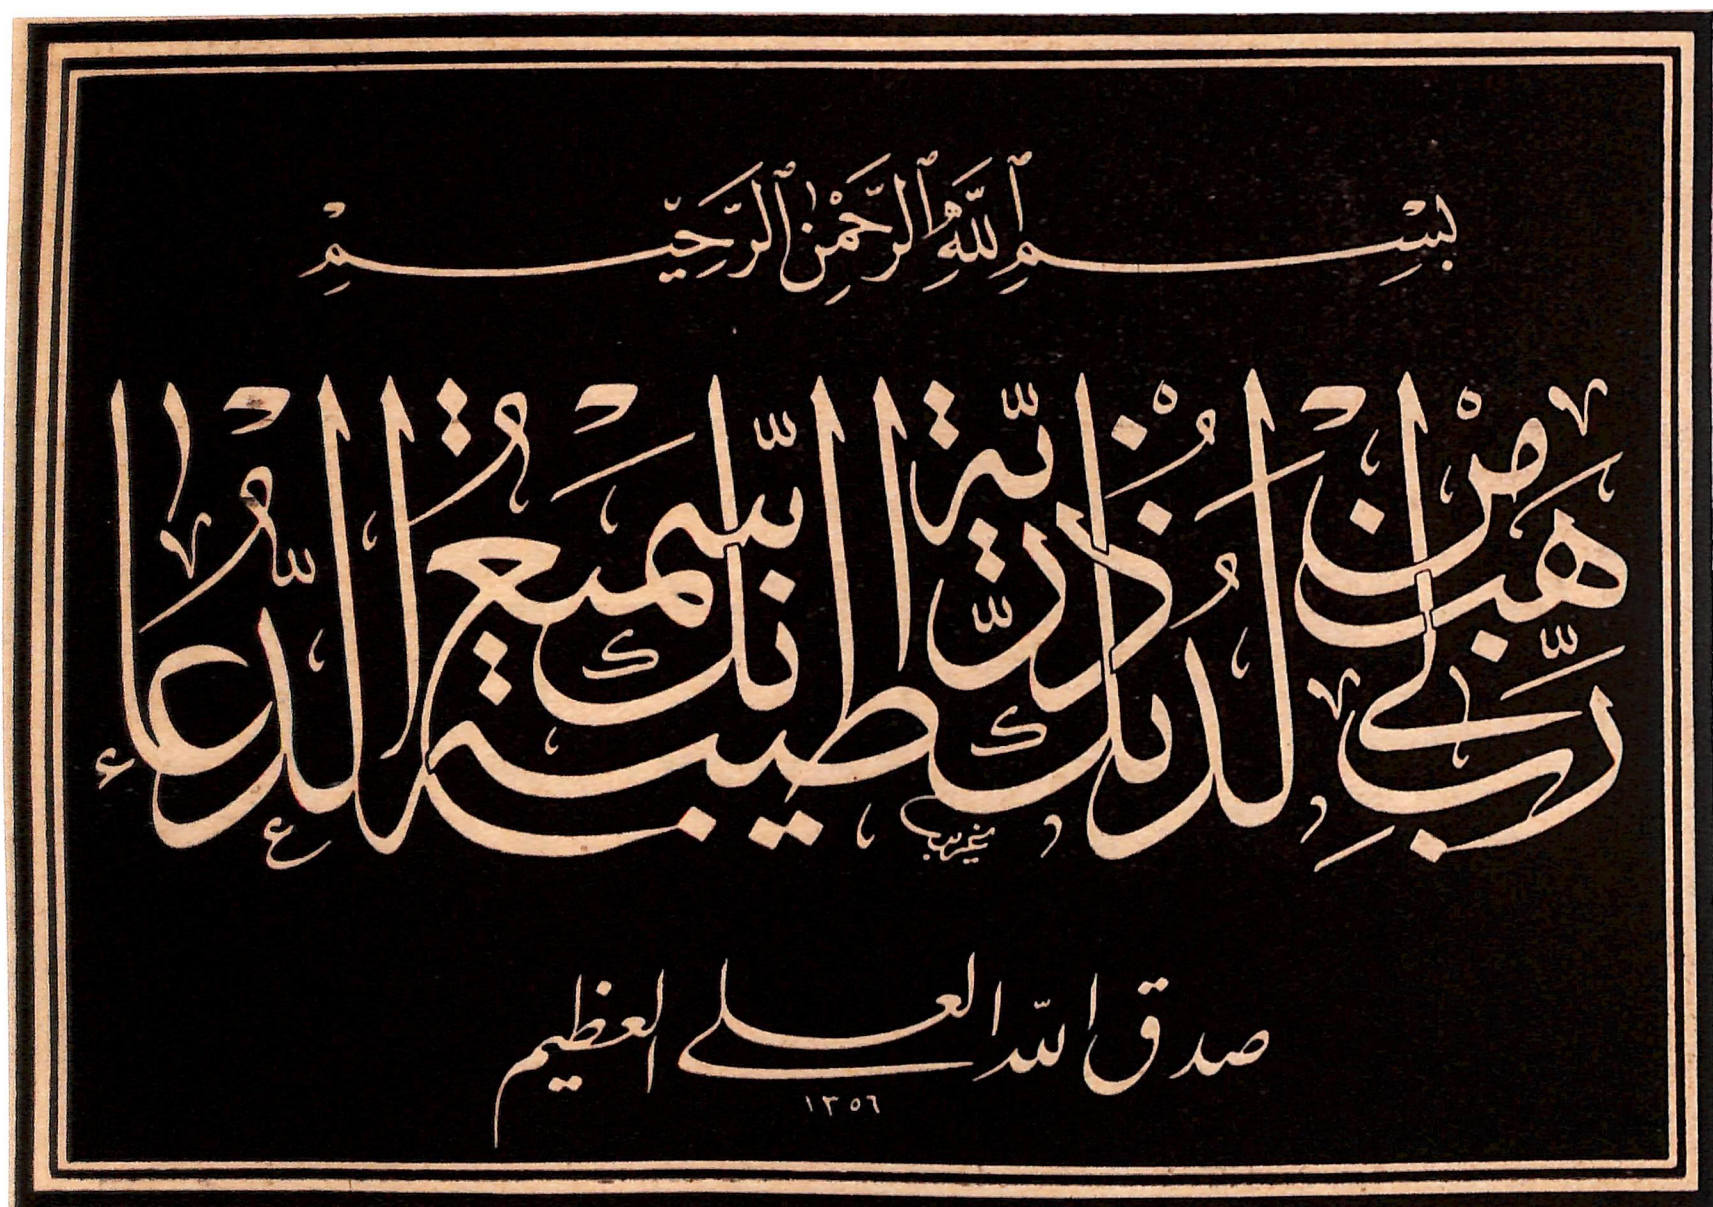 بِسْمِ ٱللَّهِ ٱلرَّحْمَٰنِ ٱلرَّحِيمِ
رَبِّ هَبْ لِي مِنْ لَدُنْكَ ذُرِّيَّةً طَيِّبَةً إِنَّكَ سَمِيعُ الدُّعَاءِ
غريب
صدق الله العلي العظيم
١٣٥٦